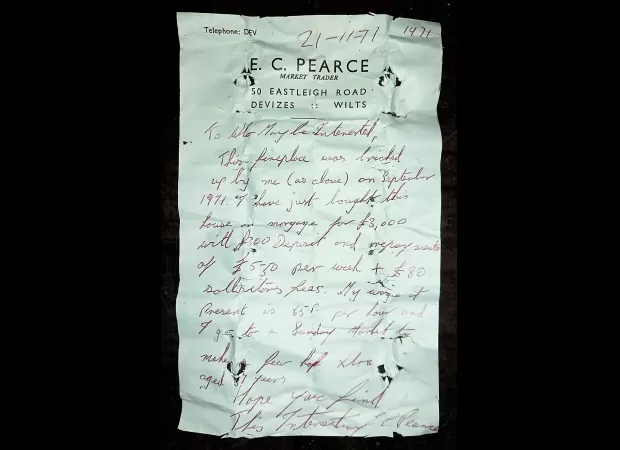 Telephone: DEV
21-11-71 1971
E. C. PEARCE
MARKET TRADER
50 EASTLEIGH ROAD
DEVIZES :: WILTS
To Who May be Interested,
This fireplace was bricked
up by me (as above) on September
1971. I have just bought this
house on morgage for £3,000
with Deposit and
of £5.50 per week + £80
fees. My wage at
Present is 65P. per hour and
I go to a Sunday Market to
make a few xtra
aged years
Hope you find
This Interesting E.C. Pearce